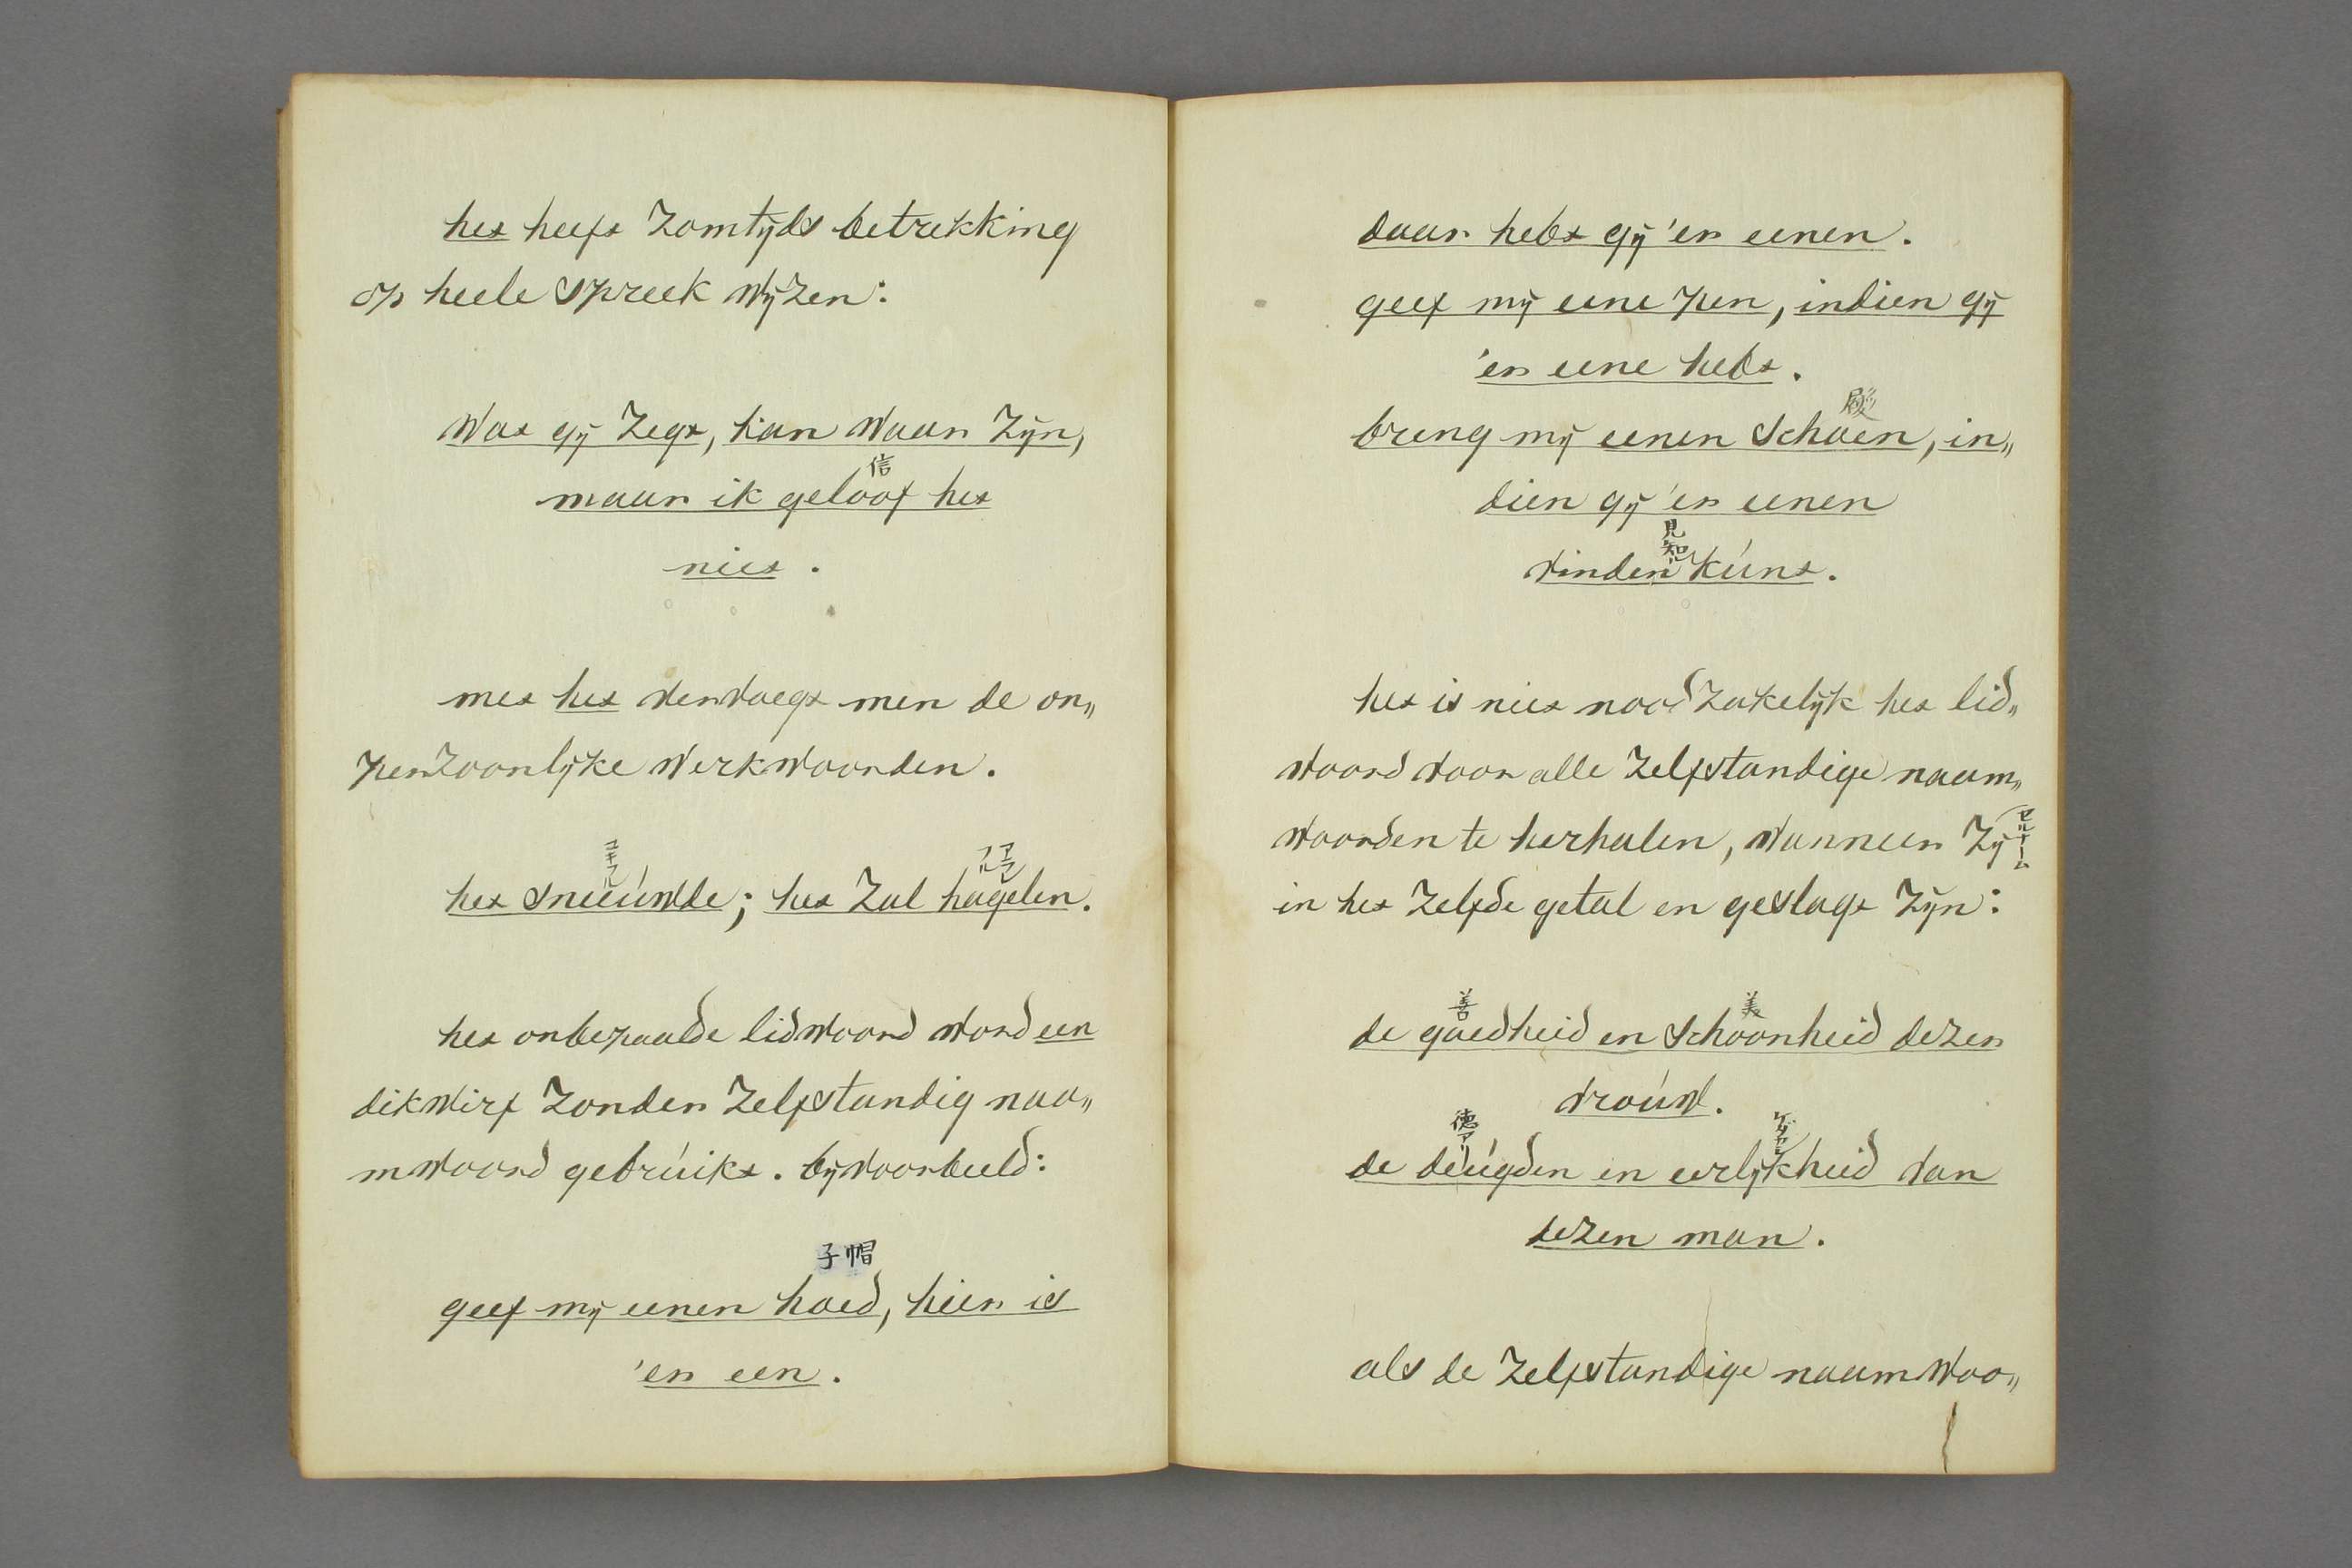 het heeft zomtijds betrekking
op heele spreek wijzen:
Wat gij zegt, kan waar zijn,
信
maar ik geloof het
niet.
met het vervoegt men de on„
perzoonlijke werkwoorden.
ユキフル
アラフル
het sneeúwde; het zal hagelen.
het onbepaalde lidwoord word een
dikwirf zonder zelfstandig naa„
mwoord gebrúikt. bijvoorbeeld:
子帽
geef mij eenen hoed, hier is
'er een.
daar hebt gij 'er eenen.
geef mij eene pen, indien gij
'er eene hebt.
breng mij eenen schoen, in„
dien gij 'er eenen
見知
vinden kúnt.
het is niet noodzakelijk het lid„
woord voor alle zelfstandige naam„
woorden te herhalen, wanneer zij
in het zelfde getal en geslagt zijn:
善
美
de goedheid en schoonheid dezer
vroúw.
徳
de deúgden en eerlijkheid van
dezen man.
als de zelfstandige naamwoo„